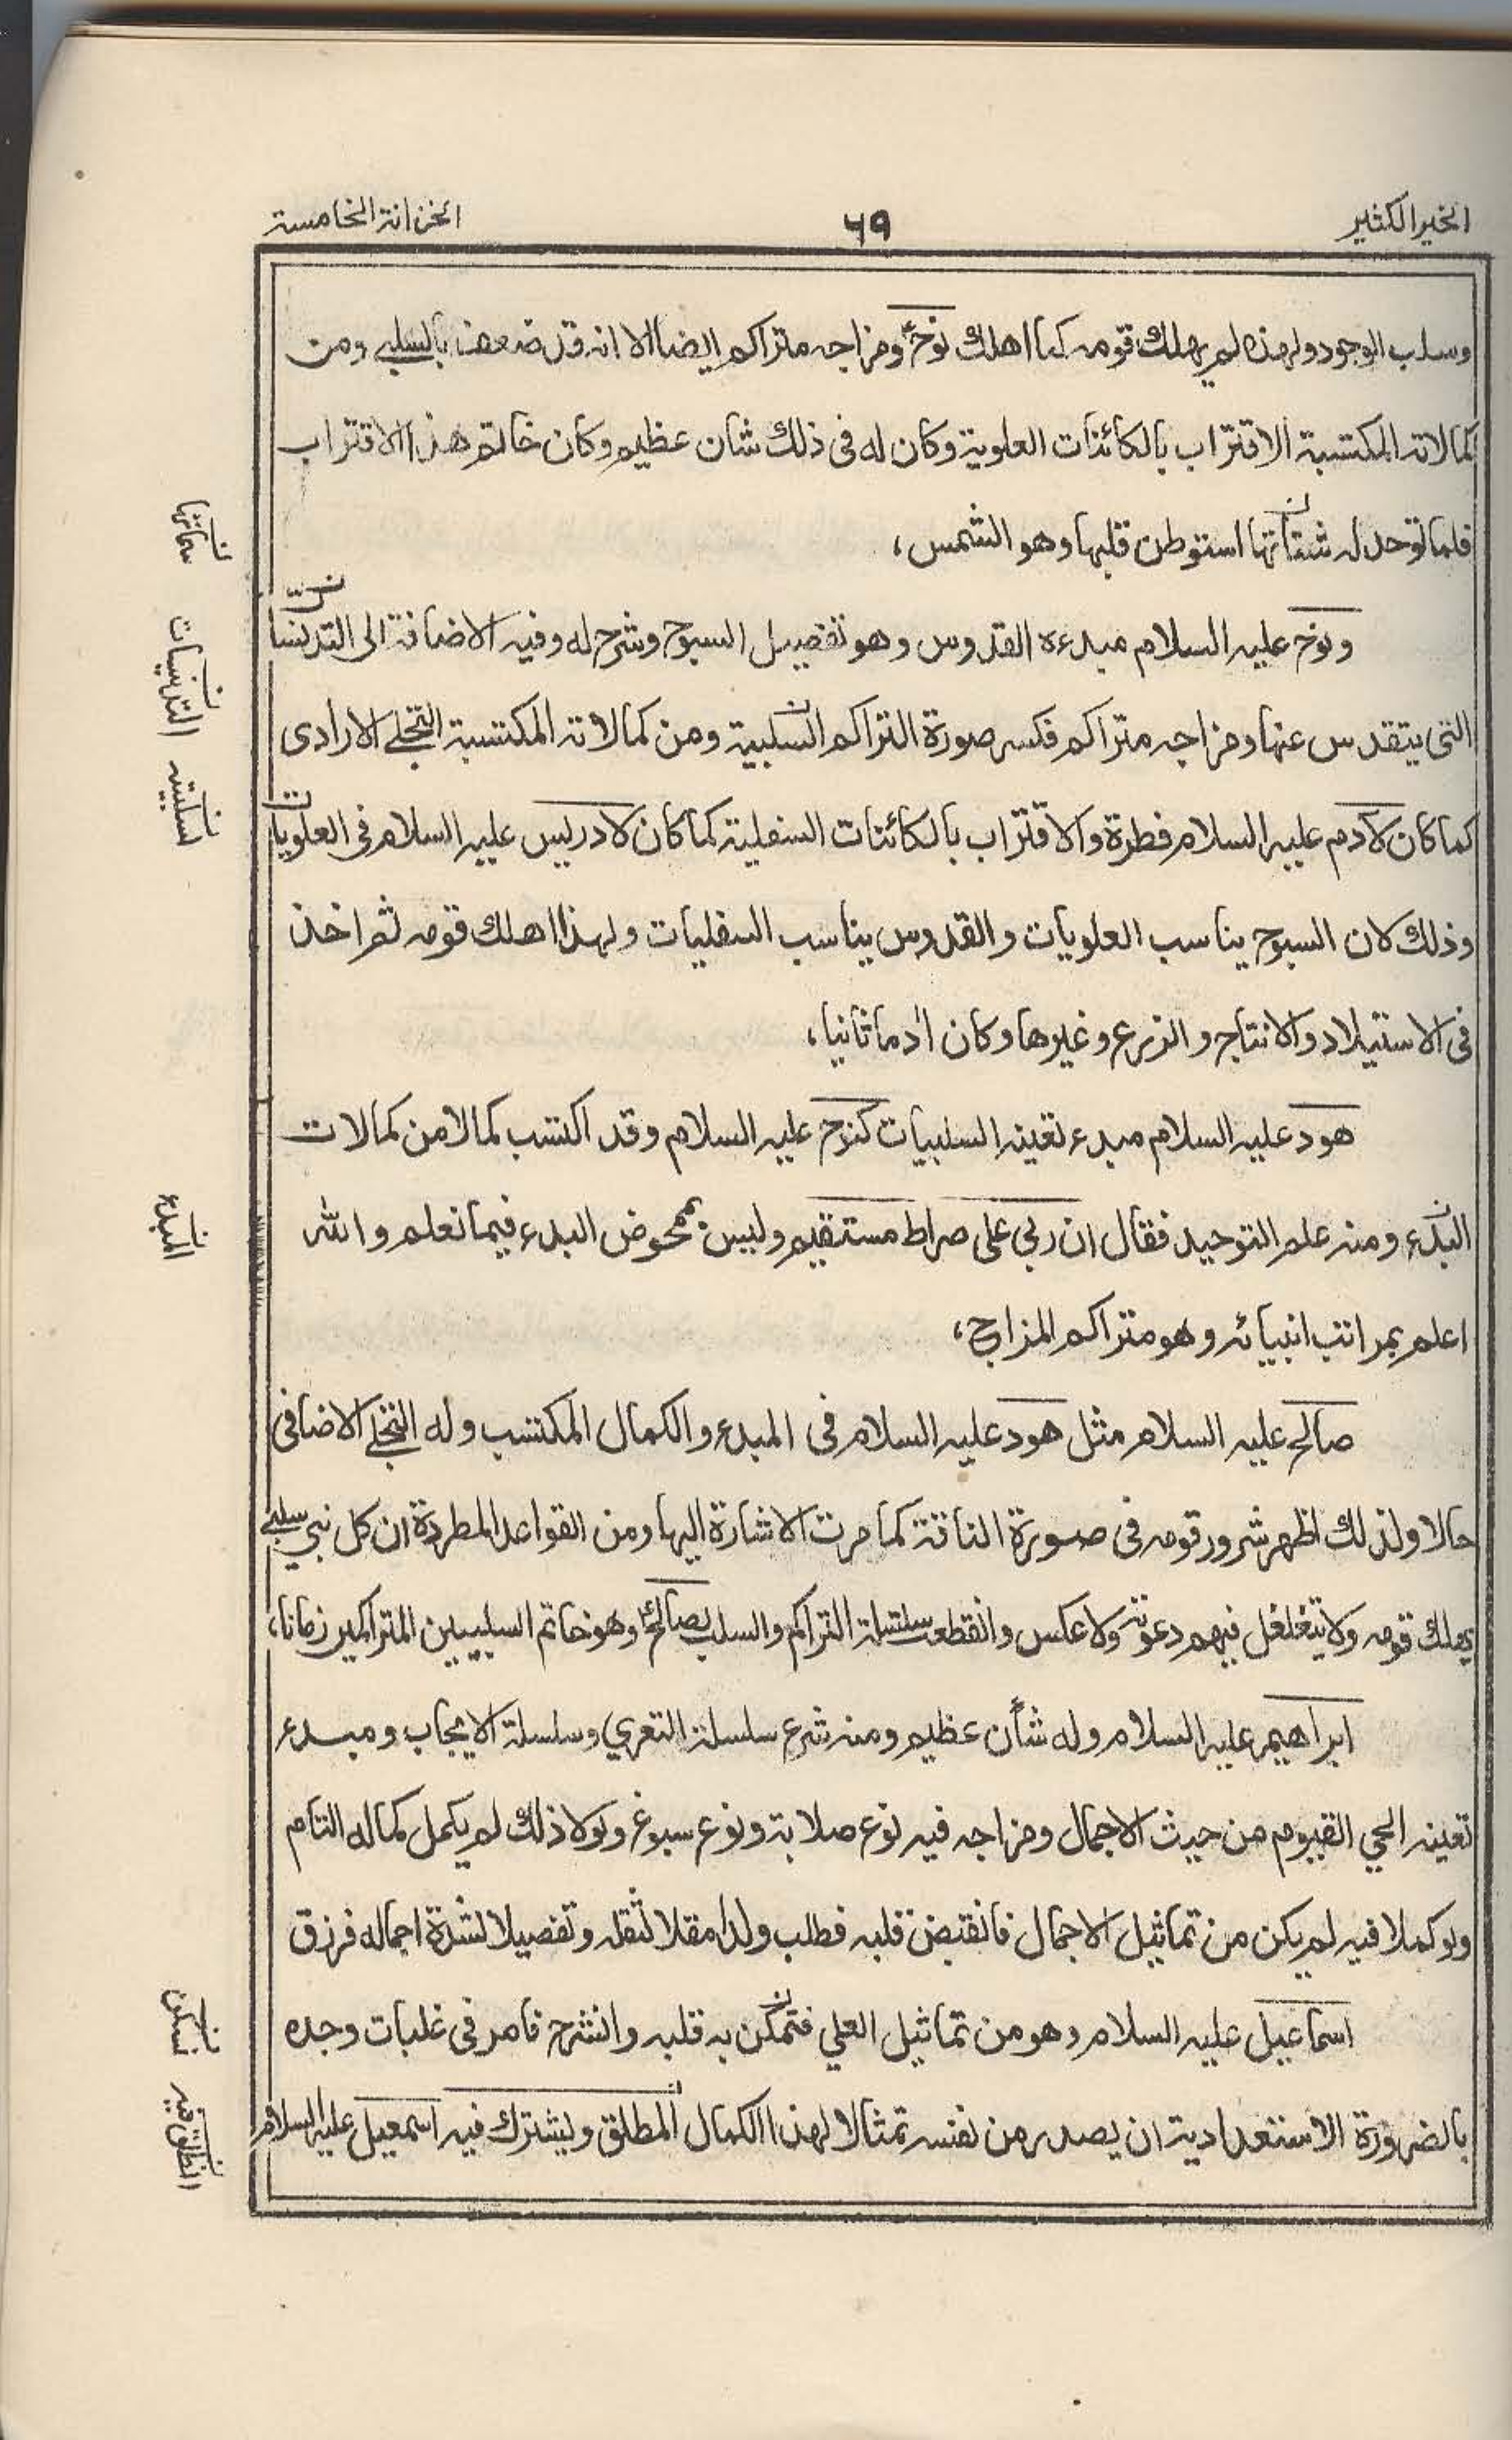 الخير الكثير
٦٩
الخزانة الخامسة
وسلب الوجود ولهذه لم يهلك قومه كما اهلك نوحؑ ومزاجه متراكم ايضا الا انه قد ضعف بالسلبي ومن
كمالاته المكتسبة الاقتراب بالكائنات العلوية وكان له فى ذلك شان عظيم وكان خاتم هذا الاقتراب
فلما توحد له شتاتها استوطن قلبها وهو الشمس،
ونوح عليه السلام مبدءه القدوس وهو تفصيل السبوح وشرح له وفيه الاضافة الى التدنسات
التى يتقدس عنها ومزاجه متراكم فكسر صورة التراكم السلبية ومن كمالاته المكتسبة التجلى الارادى
كما كان لآدم عليه السلام فطرة والاقتراب بالكائنات السفلية كما كان لادريس عليه السلام فى العلويات
وذلك لان السبوح يناسب العلويات والقدوس يناسب السفليات ولهذا اهلك قومه ثم اخذ
فى الاستيلاد والانتاج والزرع وغيرها وكان اٰدما ثانيا،
هود عليه السلام مبدء تعينه السلبيات كنوح عليه السلام وقد اكتسب كمالا من كمالات
البدء ومنه علم التوحيد فقال ان ربي على صراط مستقيم وليس بمحوض البدء فيما نعلم والله
اعلم بمراتب انبيائه وهو متراكم المزاج،
صالح عليه السلام مثل هود عليه السلام فى المبدء والكمال المكتسب وله التجلى الاضافى
حالا ولذلك اظهر شرور قومه فى صورة الناقة كما مرت الاشارة اليها ومن القواعد المطردة ان كل نبي سلبي
يهلك قومه ولا يتغلغل فيهم دعوته ولا عكس وانقطعت سلسلة التراكم والسلب بصالحؑ وهو خاتم السلبيين المتراكمين زمانا،
ابراهيم عليه السلام وله شأن عظيم ومنه شرع سلسلة التعري وسلسلة الايجاب ومبدء
تعينه الحي القيوم من حيث الاجمال ومزاجه فيه نوع صلابة ونوع سبوغ ولولا ذلك لم يكمل كماله التام
ولو كملا فيه لم يكن من تماثيل الاجمال فانقبض قلبه فطلب ولدا مقلا لثقله وتفصيلا لشدة اجماله فرزق
اسماعيل عليه السلام وهو من تماثيل العلي فتمكن به قلبه وانشرح فامر فى غلبات وجده
بالضرورة الاستعدادية ان يصدر من نفسه تمثالا لهذا الكمال المطلق وليشترك فيه اسمعيل عليه السلام
سماتها
التدنيسات
لسلبيته
المبدء